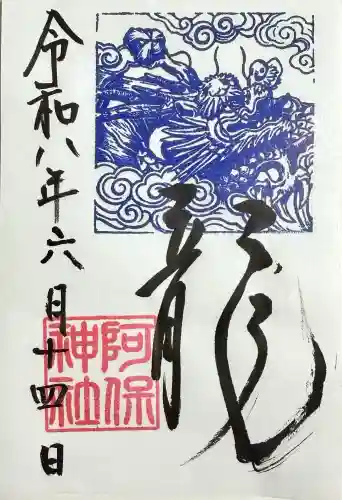 龍
令和八年六月十四日
阿保
神社